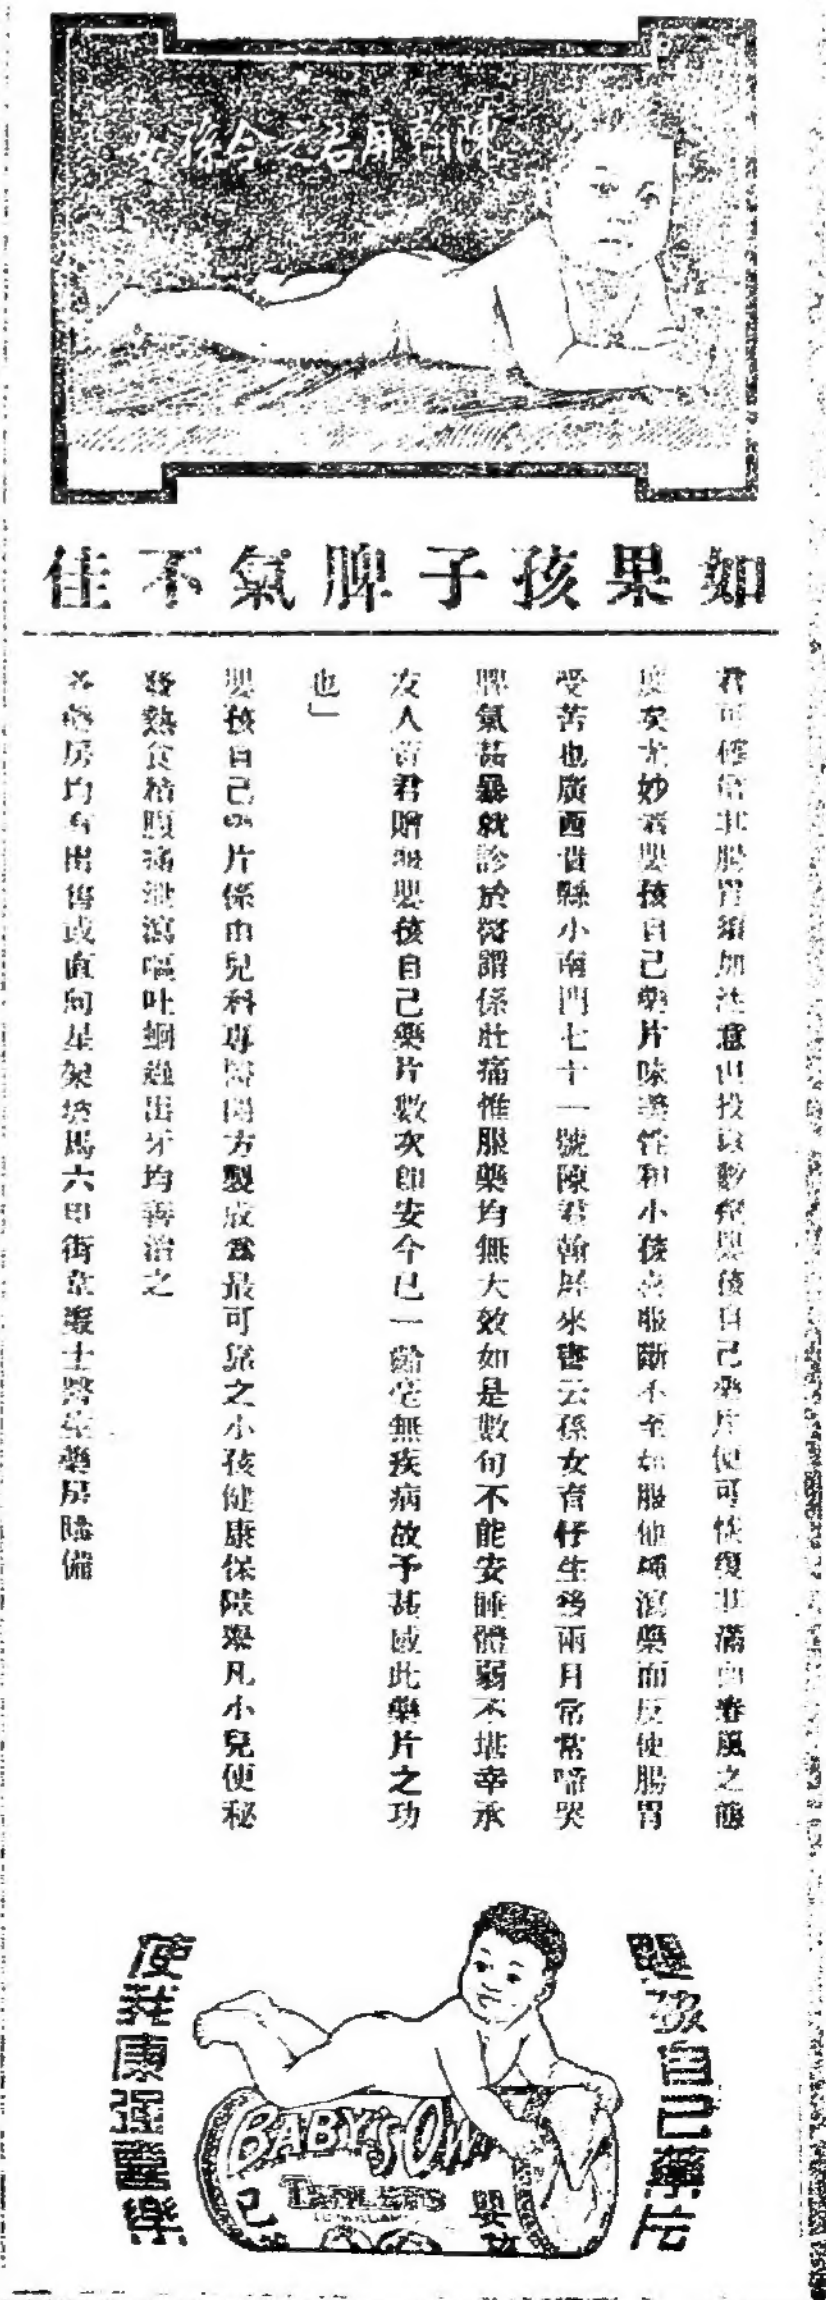 陳翰屏君之令孫女
如果孩子脾氣不佳
君可確信其腸胃須加注意但投以數劑嬰孩自己藥片便可恢復其滿面春風之態
度矣尤妙者嬰孩自己藥片味美性和小孩喜服斷不至如服他種瀉藥而反使腸胃
受苦也廣西貴縣小南門七十一號陳君翰屏來書云孫女育仔生多兩月常常啼哭
脾氣甚暴就診於徵謂係肚痛惟服藥均無大效如是數旬不能安睡體弱不堪幸承
友人黃君贈服嬰孩自己藥片數次即安今已一齡毫無疾病故予甚感此藥片之功
也」
嬰孩自己藥片係由兒科專醫開方製成為最可靠之小孩健康保障舉凡小兒便秘
發熱食積腹痛泄瀉嘔吐蛔蟲出牙均善治之
各藥房均有出售或直向星架坡馬六甲街韋廉士醫生藥房購備
嬰孩自己藥片
BABY'S OWN
TABLETS
嬰孩
己
使壯康強喜樂